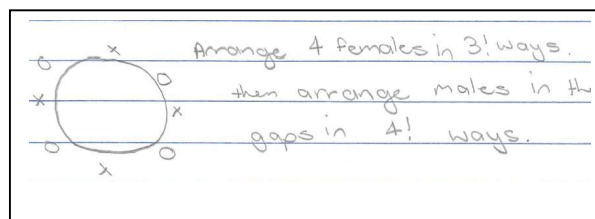 Arrange 4 females in 3! ways.
then arrange males in the
gaps in 4! ways.